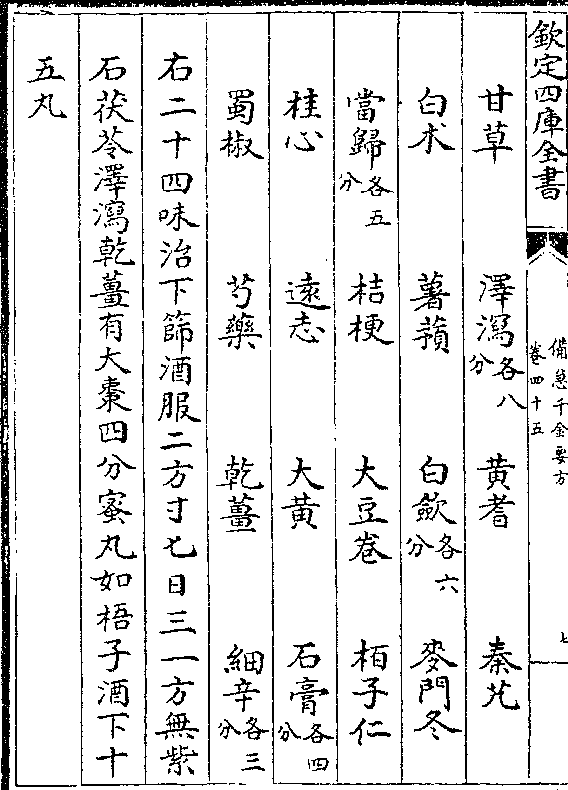 欽定四庫全書
備急千金要方
卷四十五
七
甘草 澤瀉各八分 黄耆 秦艽
白术 薯蕷 白歛各六分 麥門冬
當歸各五分 桔梗 大豆卷 栢子仁
桂心 逺志 大黄 石膏各四分
蜀椒 芍藥 乾薑 細辛各三分
右二十四味治下篩酒服二方寸匕日三一方無紫
石茯苓澤瀉乾薑有大棗四分蜜丸如梧子酒下十
五丸